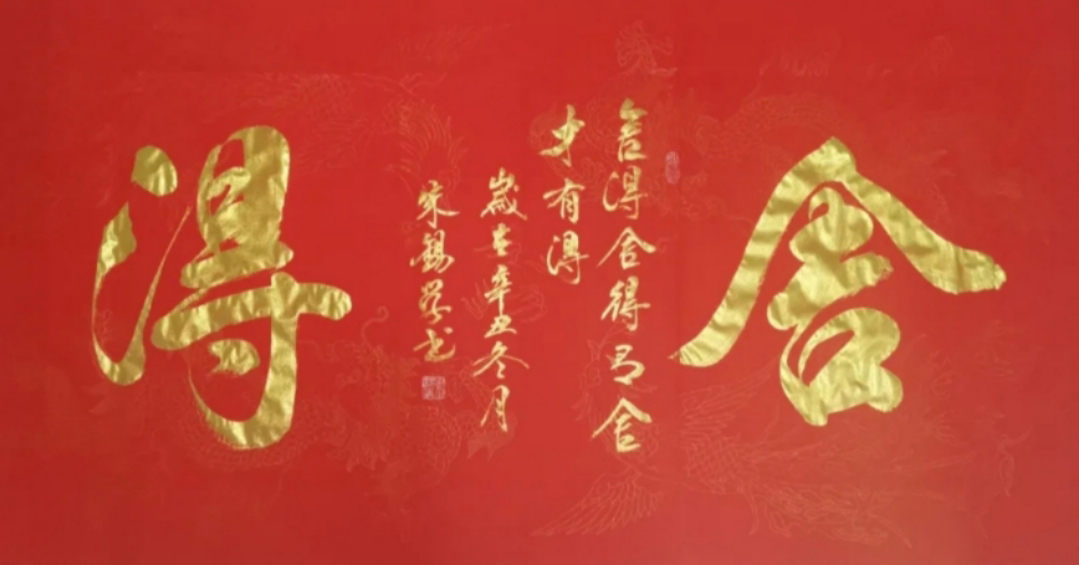 舍
舍得舍得有舍
才有得
歲在辛丑冬月
錫书
得